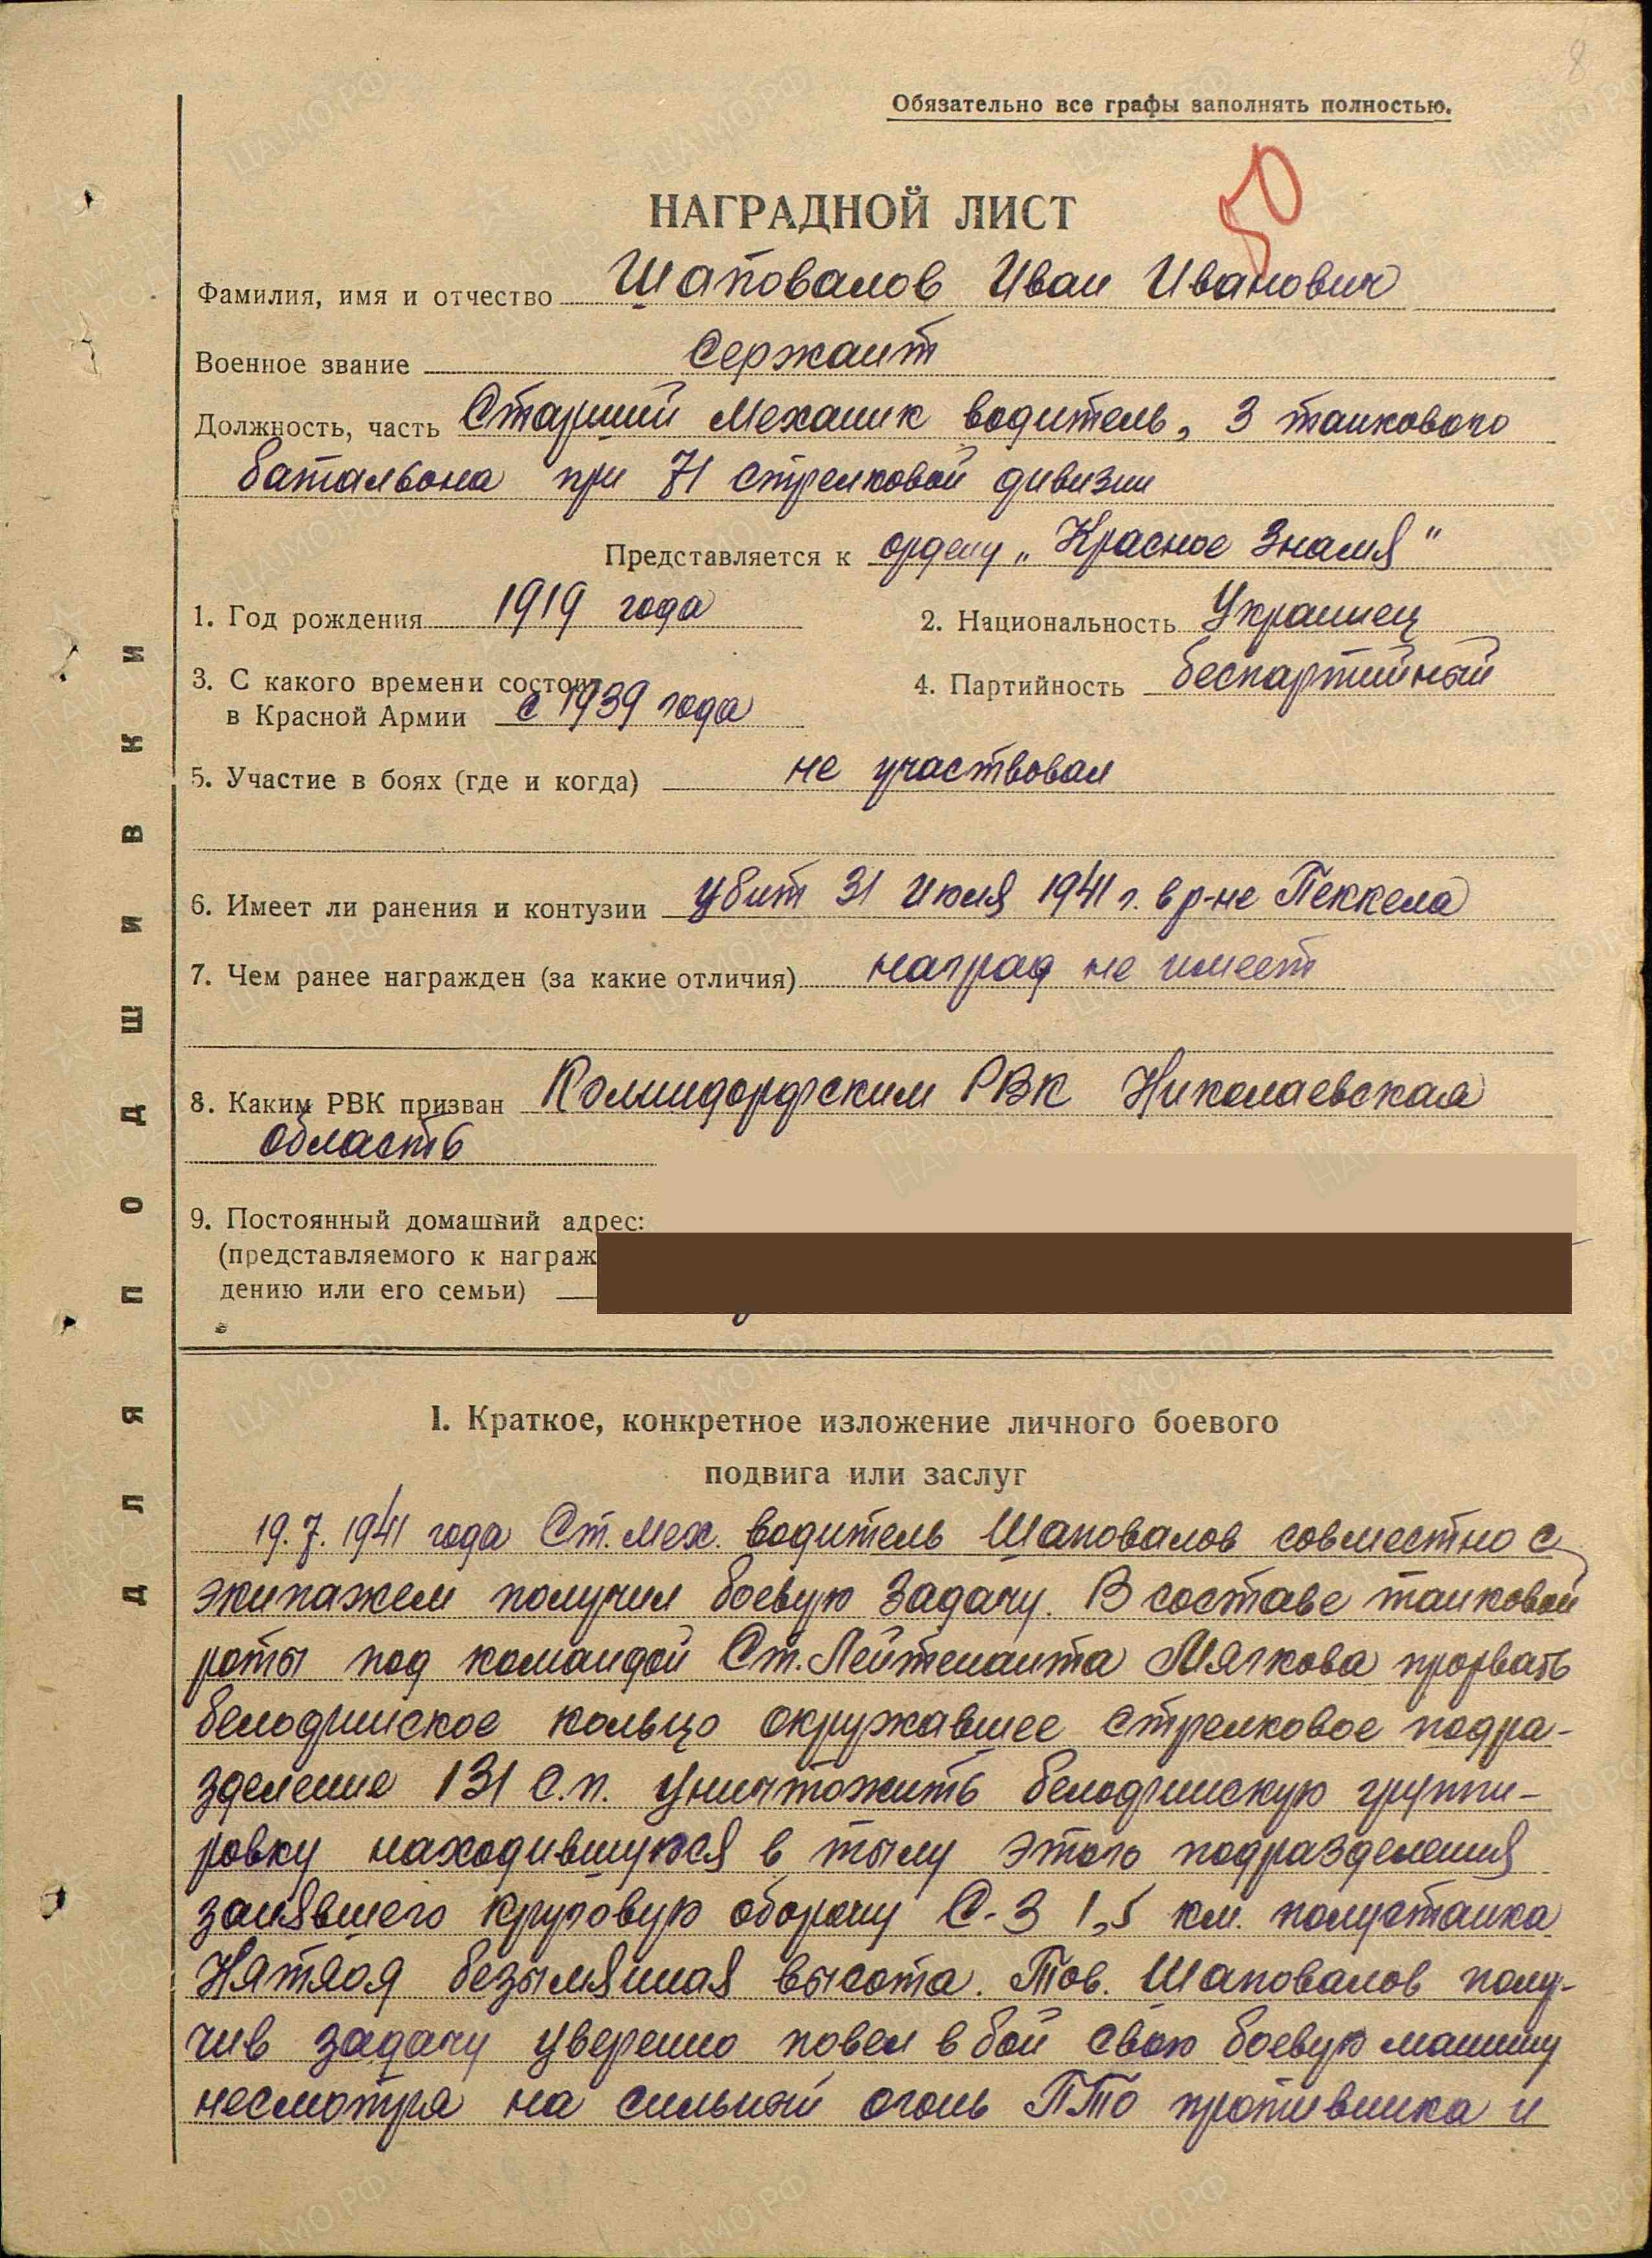 8
Обязательно все графы заполнять полностью.
НАГРАДНОЙ ЛИСТ
50
Фамилия, имя и отчество Шаповалов Иван Иванович
Военное звание Сержант
Должность, часть Старший Механик водитель, 3 танкового
батальона при 71 стрелковой дивизии
Представляется к ордену „Красное Знамя"
1. Год рождения 1919 года
2. Национальность Украинец
3. С какого времени состоит
в Красной Армии с 1939 года
4. Партийность беспартийный
5. Участие в боях (где и когда) не участвовал
6. Имеет ли ранения и контузии убит 31 июля 1941 г. в р-не Пеккела
7. Чем ранее награжден (за какие отличия) наград не имеет
8. Каким РВК призван РВК Николаевская
область
9. Постоянный домашний адрес:
(представляемого к награж
дению или его семьи)
I. Краткое, конкретное изложение личного боевого
подвига или заслуг
19.7.1941 года Ст. Мех. водитель Шаповалов совместно с
экипажем получил боевую задачу. В составе танковой
роты под командой Ст. Лейтенанта Мягкова прорвать
белофинское кольцо окружавшее стрелковое подра-
зделение 131 с.п. уничтожить белофинскую группи-
ровку находившуюся в тылу этого подразделения
занявшего круговую оборону С-З 1,5 км. полустанка
безымянная высота. Тов. Шаповалов полу-
чив задачу уверенно повел в бой свою боевую машину
несмотря на сильный огонь ПТО противника и
ДЛЯ ПОДШИВКИ
ЦАМО РФ